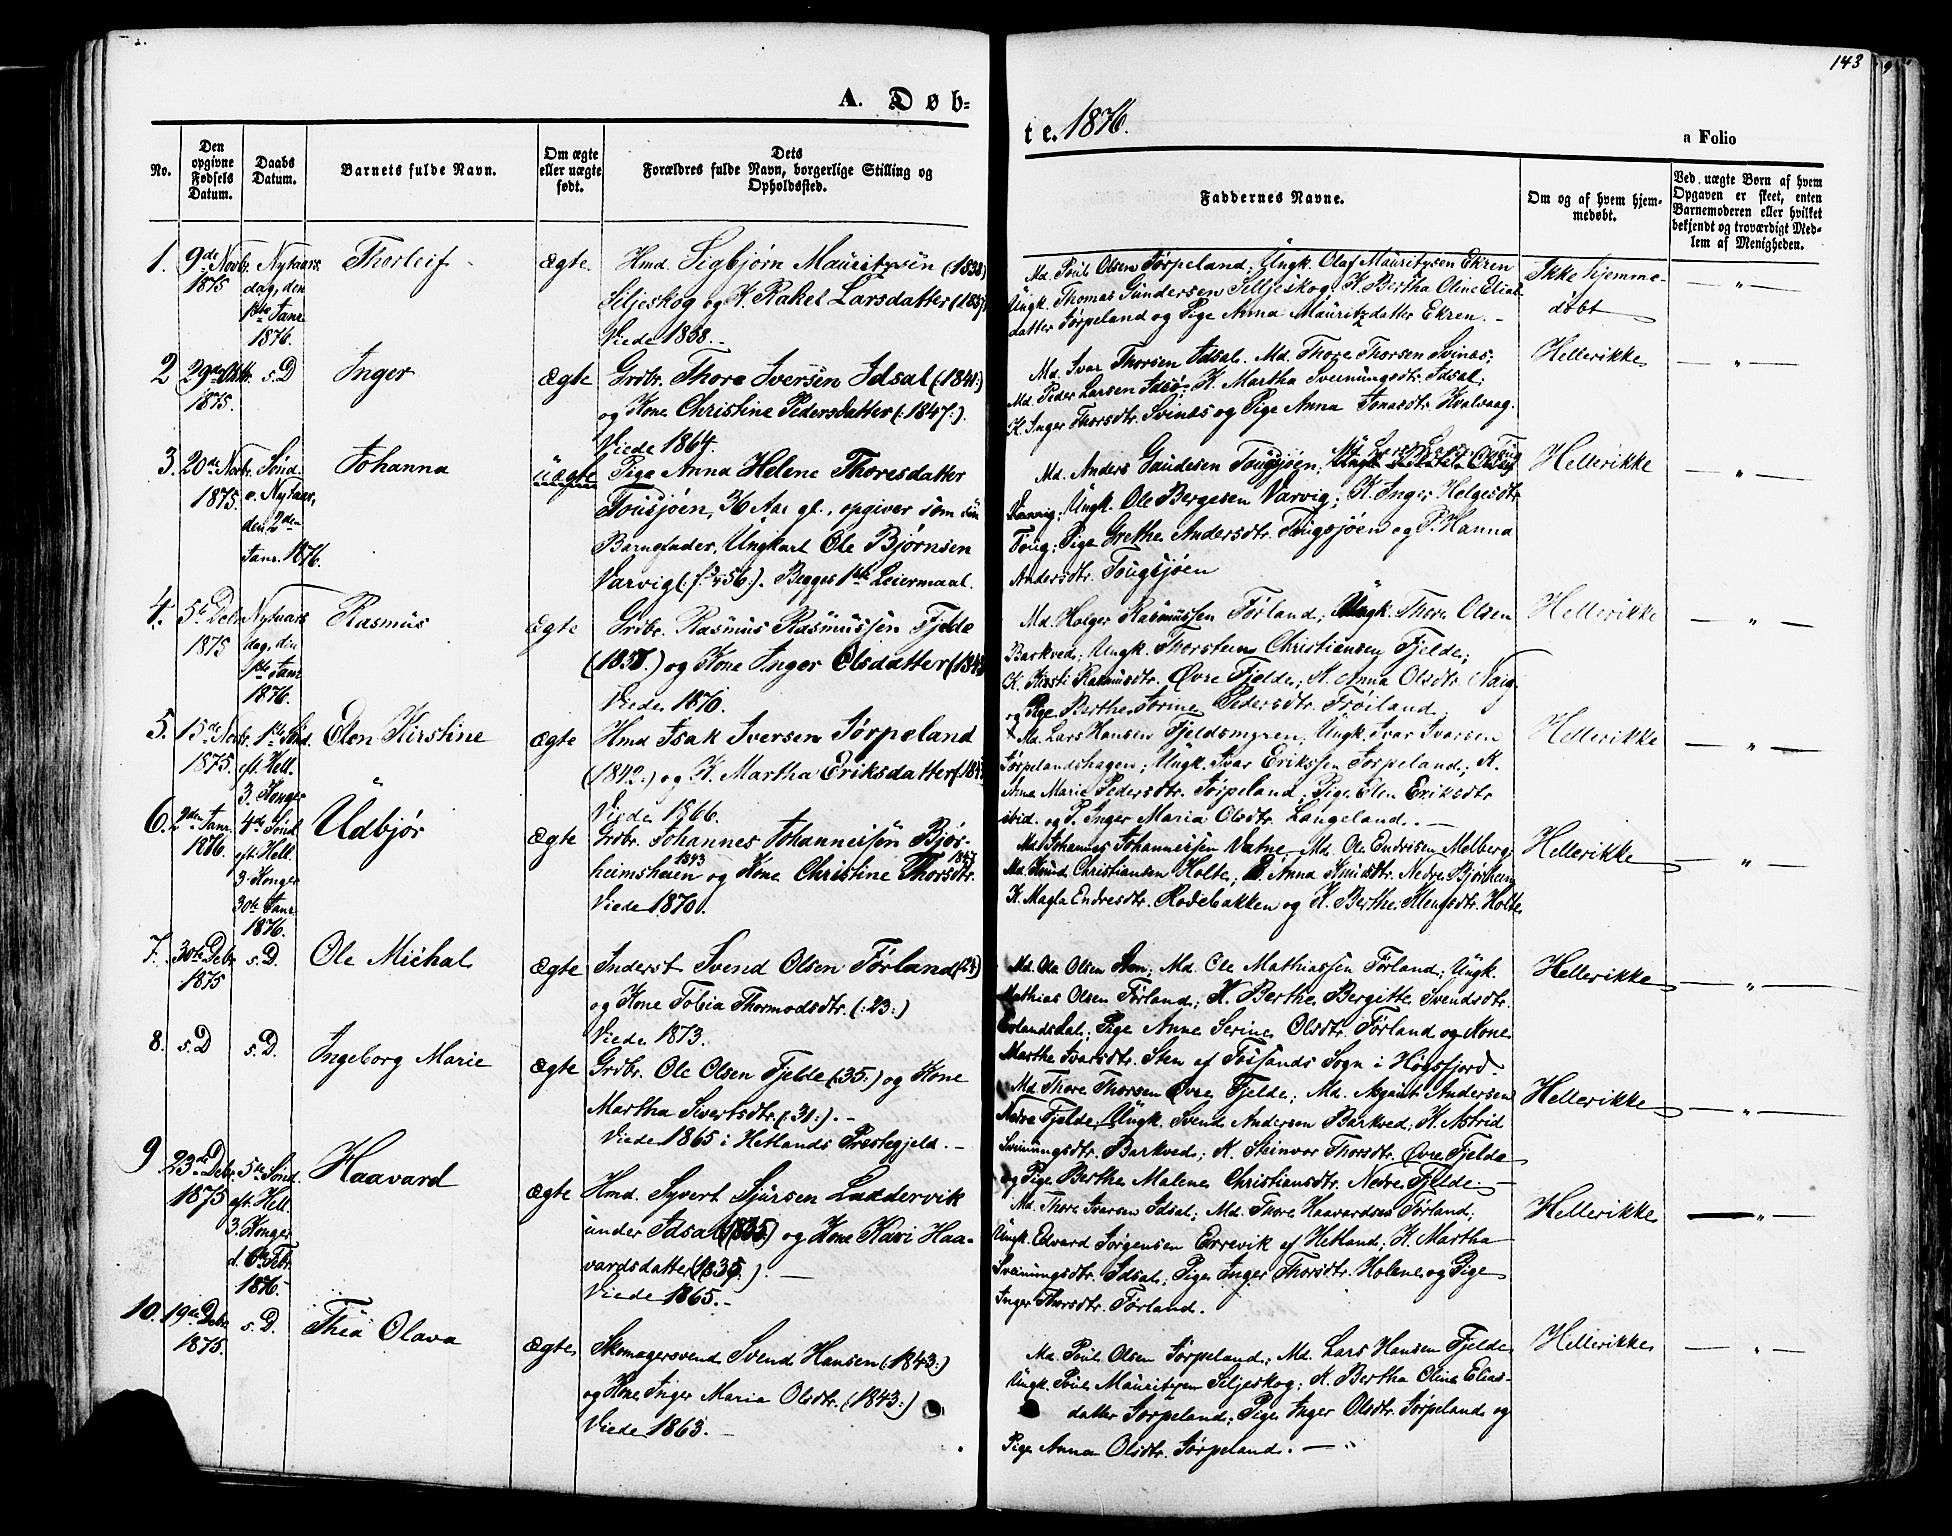 143
A. Døb-
te. 1876.
a Folio
No.
Den opgivne Fødsels Datum.
Daabs Datum.
Barnets fulde Navn.
Om ægte eller uægte født.
Dets Forældres fulde Navn, borgerlige Stilling og Opholdssted.
Faddernes Navne.
Om og af hvem hjem-
medøbt.
Ved uægte Børn af hvem
Opgaven er skeet, enten
Barnemoderen eller hvilket
bekjendt og troværdigt Med-
lem af Menigheden.
1.
9de Novbr.
1875
Nytaars
dag, den
1ste Janr.
1876.
Thorleif
ægte.
Hmd. Sigbjørn Mauritzsen (1838)
Siljeskog og K. Rakel Larsdatter
Viede 1858.
Md. Poul Olsen Jørpeland; Ungk. Olaf Mauritzsen Ekren
Ungk. Thomas Gundersen Siljeskog; K. Bertha Oline Elias-
datter Jørpeland og Pige Anna Mauritzdatter Ekren.
Ikke hjemme-
døbt
— „ —
2
29de Oktbr.
1875.
s. D
Inger
ægte
Grdbr. Thore Iversen Idsal (1841:)
og Kone Christine Pedersdatter (:1847:).
Viede 1864.
Md. Ivar Thorsen Idsal. Md. Thore Thorsen Svinæs;
Md. Peder Larsen Idsø; K. Martha Sveinungsdtr. Idsal;
K. Inger Thorsdtr. Svinæs og Pige Anna Jonasdtr. Kvalvaag.
Hellerikke
— „ —
3.
20de Novbr.
1875.
Sønd.
e. Nytaar,
den 2den
Janr. 1876.
Johanna
uægte
Pige Anna Helene Thoresdatter
Tousjøen, 36 Aar gl., opgiver som sin
Barnefader, Ungkarl Ole Bjørnsen
Varvig (f. 456:). Begges 1ste Leiermaal.
Md. Anders Gaudesen Tougsjøen;
Varvig; Ungk. Ole Bergesen Varvig; K. Inger Helgesdtr.
Toug; Pige Grethe Andersdtr. Tougsjøen og P. Hanna
Andersdtr. Tougsjøen
Hellerikke
„
4.
5te Debr
1875
Nytaars
dag, den
1ste Janr
1876.
Rasmus
ægte
Grdbr. Rasmus Rasmussen Fjelde
(1838.) og Kone Inger Olsdatter
Viede 1870.
Md. Holger Rasmussen Førland; Ungk. Thore Olsen
Barkved; Ungk. Thorstein Christiansen Fjelde;
K. Kirsti Rasmusdtr. Øvre Fjelde; K. Anna Olsdtr. Vaig
og Pige Berthe Serine Pedersdtr. Frøiland.
Hellerikke
— „ —
5.
15de Novbr.
1875.
1ste Sønd.
eft. Hell.
3. Konger
Elen Kirstine
ægte
Hmd Isak Iversen Jørpeland
(1842.) og K. Martha Eriksdatter
Viede 1866.
Md. Lars Hansen Fjeldsmyren; Ungk. Ivar Ivarsen
Jørpelandshagen; Ungk. Ivar Eriksen Jørpeland; K.
Anna Marie Pedersdtr. Jørpeland; Pige Elen Eriksdtr
ibid. og P. Inger Maria Olsdtr. Langeland.
Hellerikke
— „ —
6.
2den Janr.
1876.
4de Sønd.
eft. Hell.
3 Konger
30te Janr
1876.
Udbjør
ægte
Grdbr. Johannes Johannessen Bjør-
heimsheien 1843 og Kone Christine Thorsdtr.
Viede 1870.
Md. Johannes Johannessen Vatne; Md. Ole Endresen Melberg
Md. Knud Christiansen Holte; Anna Knudsdtr. Nedre Bjørheim
K. Magla Endresdtr. Rodebakken og K. Berthe Klengsdtr. Holte
Hellerikke
— „ —
7.
30te Debr
1875
s. D.
Ole Michal
ægte
Inderst Svend Olsen Førland (23)
og Kone Tobia Thormodsdtr. (:23:)
Viede 1873.
Md. Ole Olsen Sten; Md. Ole Mathiassen Førland; Ungk.
Mathias Olsen Førland; K. Berthe Bergitte Svendsdtr.
Erlandsdal; Pige Anne Serine Olsdtr. Førland og Kone
Marthe Ivarsdtr. Sten af Fossands Sogn i Høgsfjord.
Hellerikke
— „ —
8.
s. D
s. D.
Ingeborg Marie
ægte
Grdbr. Ole Olsen Fjelde (:35:) og Kone
Martha Sivertsdtr. (:31:).
Viede 1865 i Hetlands Prestegjeld.
Md. Thore Thorsen Øvre Fjelde; Md. Andersen
Nedre Fjelde; Ungk. Svend Andersen Barkved; K. Astrid
Sveinungsdtr. Barkved; K. Steinvor Thorsdtr. Øvre Fjelde
og Pige Berthe Malene Christiansdtr. Nedre Fjelde.
Hellerikke
— „ —
9
23de Debr.
1875
5te Sønd.
eft. Hell.
3. Konger
d. 6te Febr.
1876.
Haavard
ægte
Hmd. Syvert Sjursen Laddervik
under Idsal (1835) og Kone Kari Haa-
vardsdatter (1835.).
Viede 1865.
Md. Thore Ivarsen Idsal; Md. Thore Haavardsen Førland;
Ungk. Edvard Jørgensen Errevik af Hetland; K. Martha
Sveinungsdtr. Idsal; Pige Inger Thorsdtr. Holene og Pige
Inger Thorsdtr. Førland.
Hellerikke
— „ —
10.
19de Debr
1875.
s. D.
Thea Olava
ægte
Skomagersvend Svend Hansen (1843:)
og Kone Inger Maria Olsdtr. (1843:)
Viede 1863.
Md. Poul Olsen Jørpeland; Md. Lars Hansen Fjelde
Ungk. Poul Mauritzen Siljeskog; K. Bertha Oline Elias-
datter Jørpeland; Pige Inger Olsdtr. Jørpeland og
Pige Anna Olsdtr. Jørpeland.
Hellerikke
— „ —